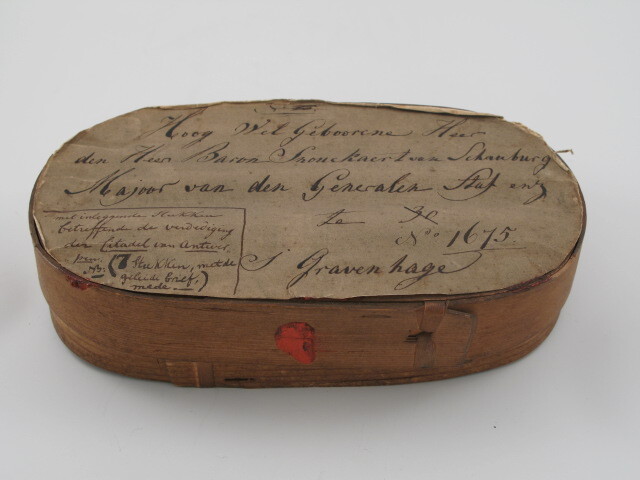 Hoog Wel Geboorene Heer
den Heer Baron Snouckaert van Schauburg
Majoor van den Generalen Staf enz
te
N° 1675.
S Gravenhage
met inleggende Stukken
betreffende de verdediging
der Citadel van Antwer,
pen.
NB. (7 Stukken, met de
geleide brief,
mede.)